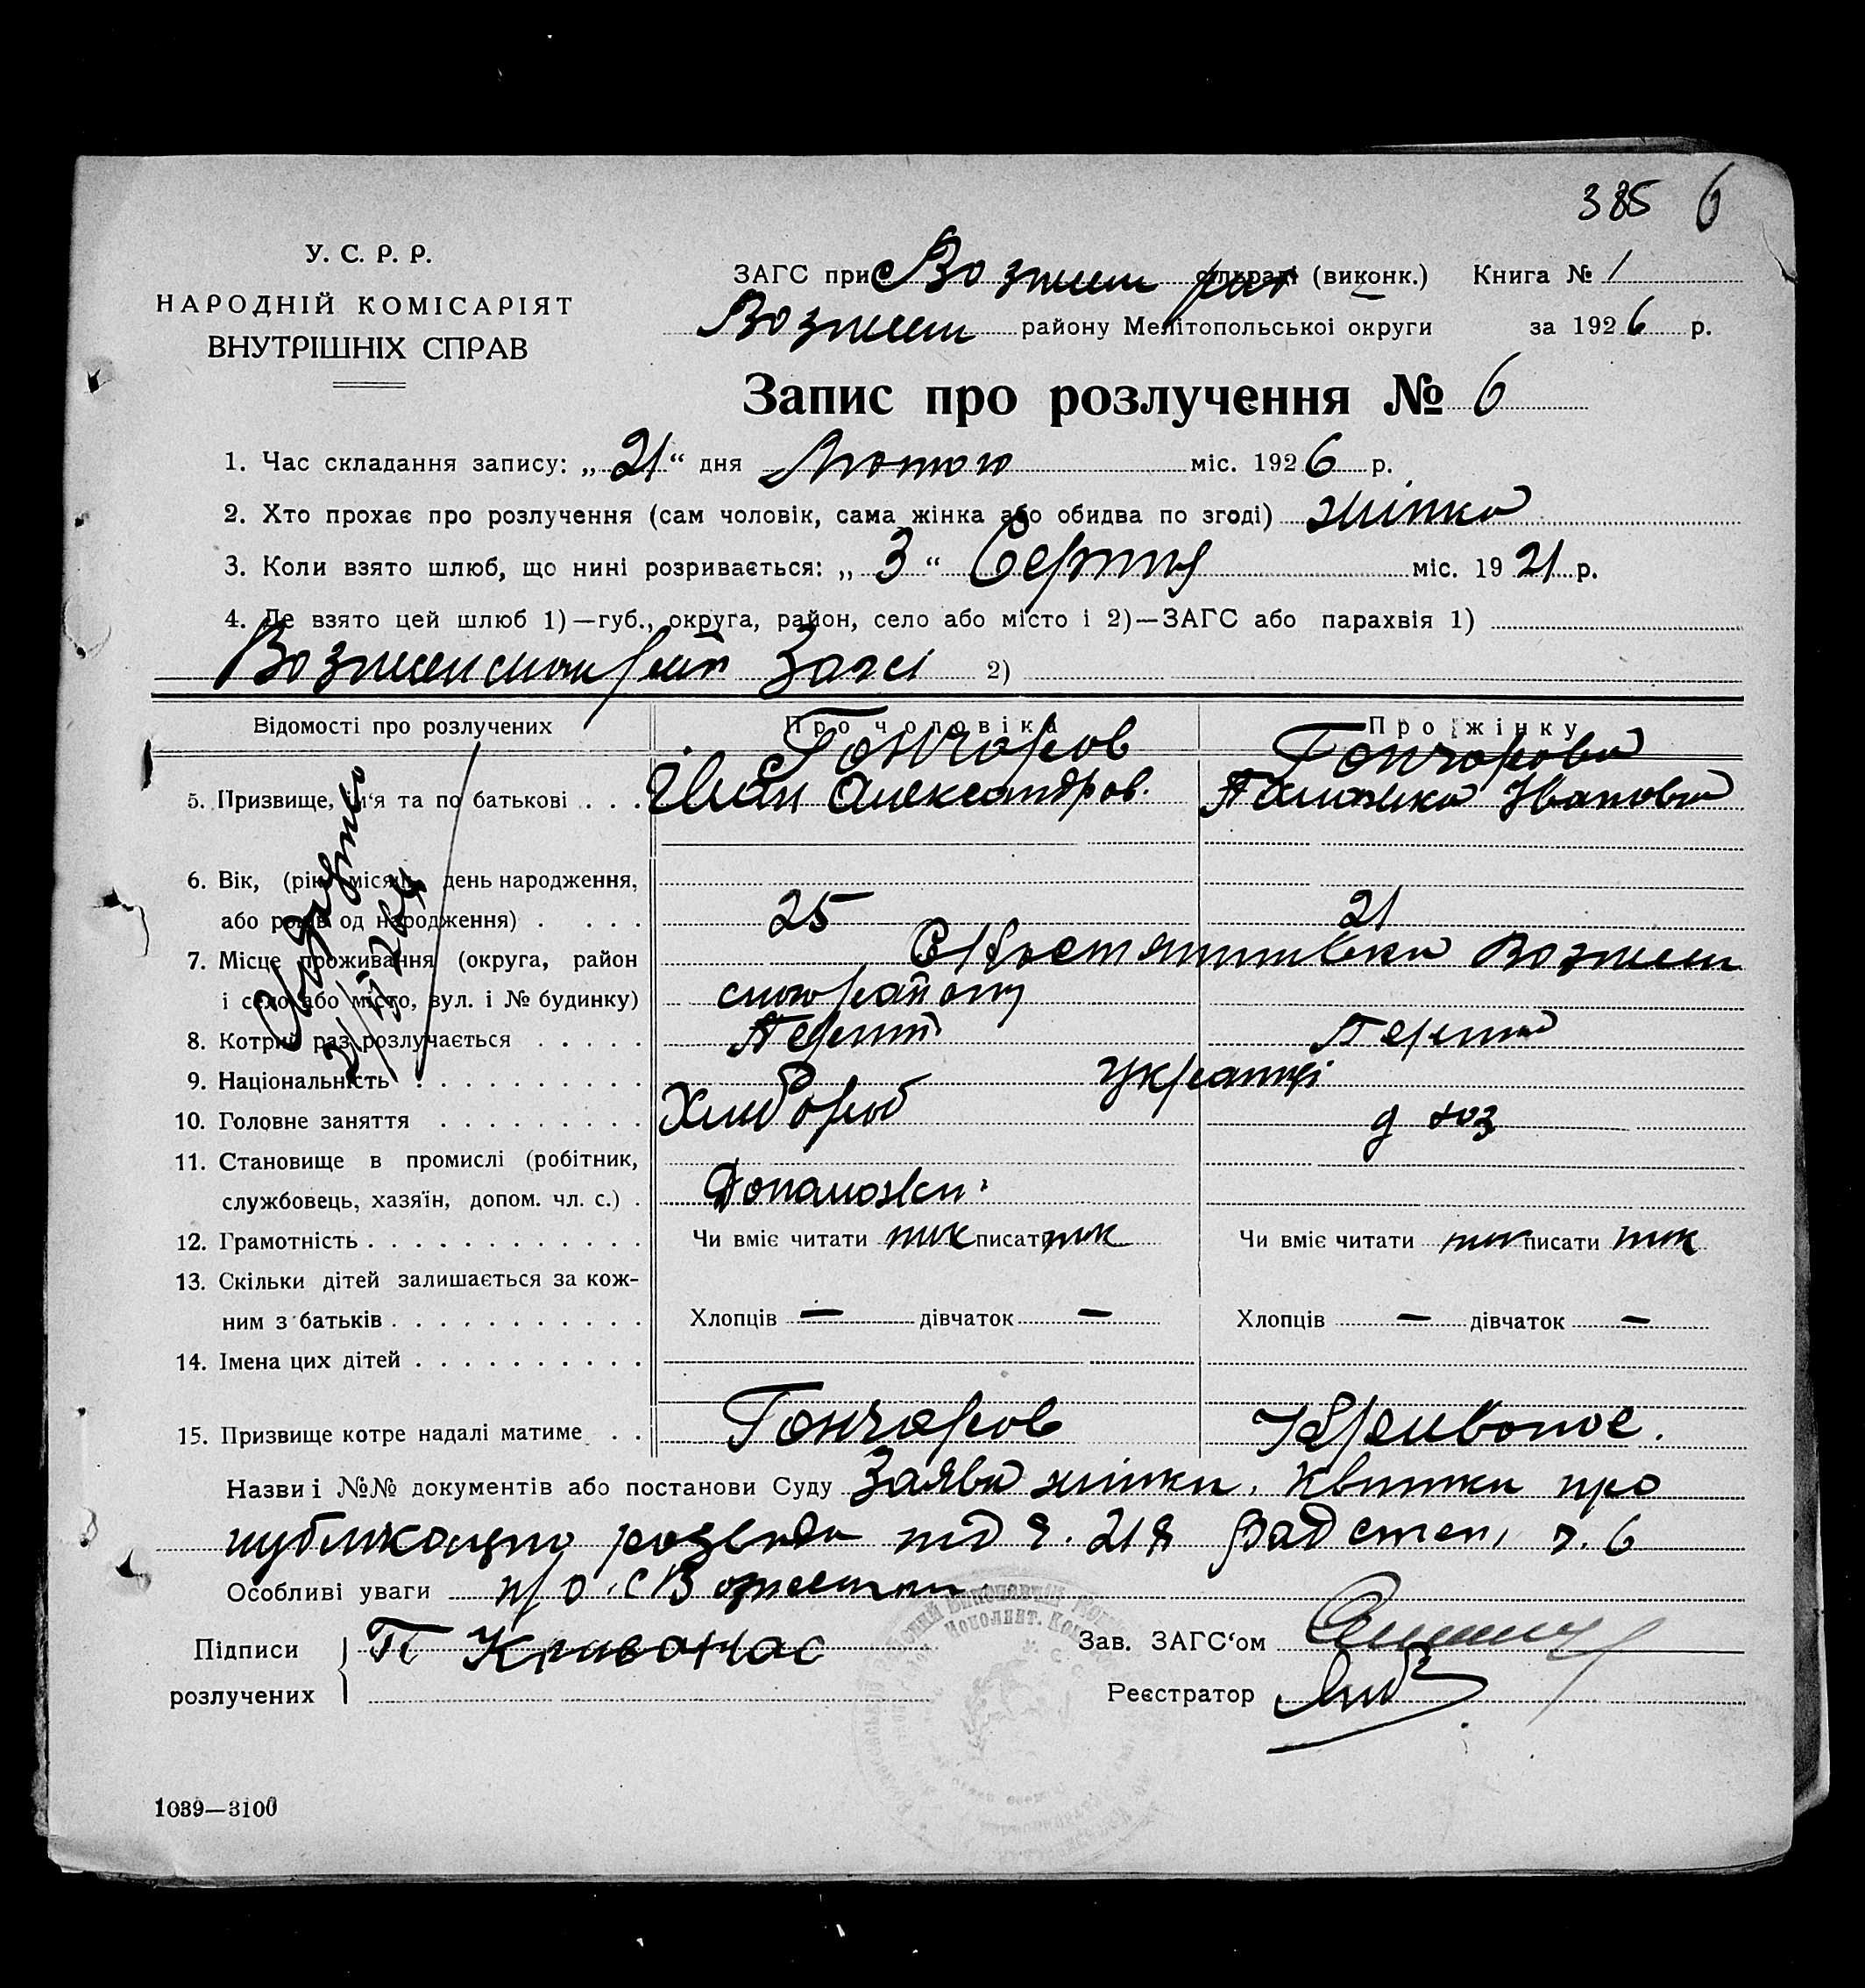 385 6
У. С. Р. Р.
НАРОДНІЙ КОМІСАРІЯТ
ВНУТРІШНІХ СПРАВ
ЗАГС при (виконк.) Книга № 1
району Мелітопольської округи за 1926 р.
Запис про розлучення № 6
1. Час складання запису: „21“ дня Лютого міс. 1926 р.
2. Хто прохає про розлучення (сам чоловік, сама жінка або обидва по згоді) жінка
3. Коли взято шлюб, що нині розривається: „3“ Серпня міс. 1921 р.
4. Де взято цей шлюб 1)—губ., округа, район, село або місто і 2)—ЗАГС або парахвія 1)
Загсі 2)
Відомості про розлучених Про чоловіка Про жінку
Гончаров Гончарова
5. Призвище, ім‘я та по батькові . . . Іван Александров. Палажка Івановна
6. Вік, (рік, місяць, день народження,
або років од народження) . . . . 25 21
7. Місце проживання (округа, район
і село або місто, вул. і № будинку)
8. Котрий раз розлучається . . . . . Перший Перший
9. Національність . . . . . . . . . . українці
10. Головне заняття . . . . . . . . . Хлибороб д хоз
11. Становище в промислі (робітник,
службовець, хазяїн, допом. чл. с.) .
12. Грамотність . . . . . . . . . . . . Чи вміє читати так писати так Чи вміє читати так писати так
13. Скільки дітей залишається за кож-
ним з батьків . . . . . . . . . . . Хлопців — дівчаток — Хлопців — дівчаток —
14. Імена цих дітей . . . . . . . . . .
15. Призвище котре надалі матиме . . Гончаров Кривонос.
Назви і №№ документів або постанови Суду Заява жінки, Квитки про
публікацію під ч. 218 ч. 6
Особливі уваги п/о
Підписи П Кривонас Зав. ЗАГС‘ом
розлучених Реєстратор
1039—3100